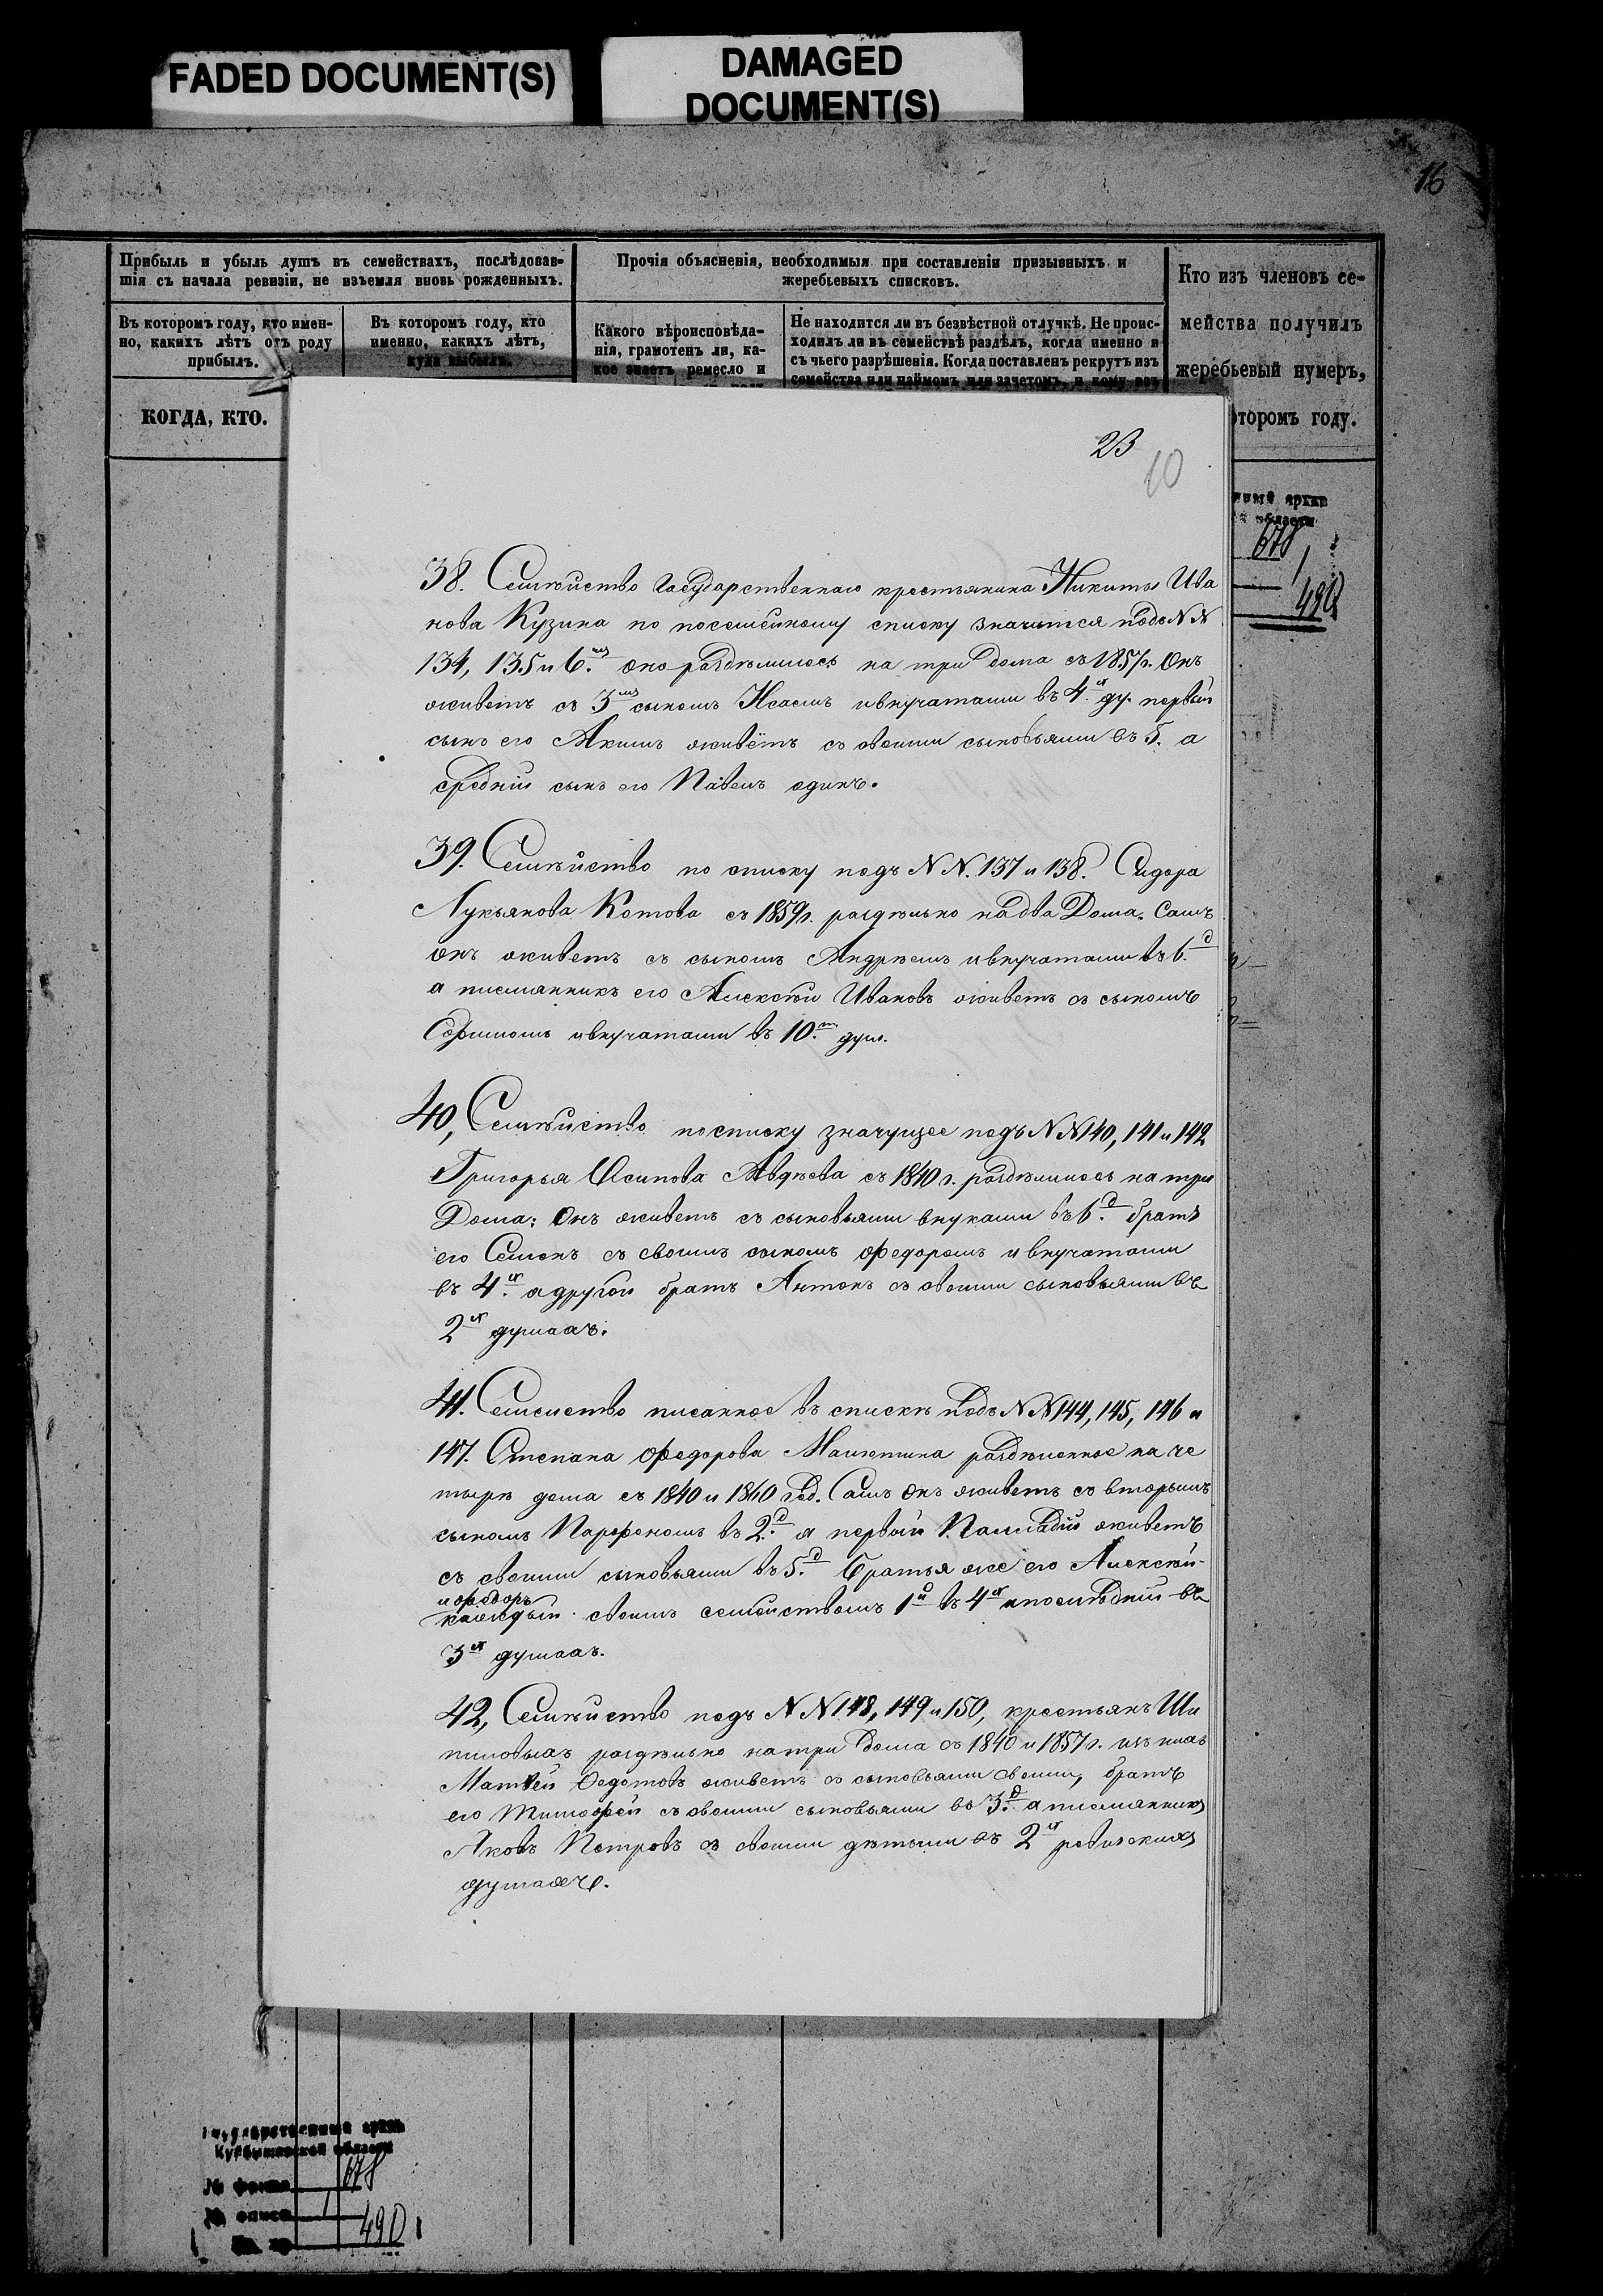 FADED DOCUMENT(S)
DAMAGED
DOCUMENT(S)
16
Прибыль и убыль душъ въ семействахъ, послѣдовав-
шія съ начала ревизіи, не изъемля вновь рожденныхъ.
Въ которомъ году, кто имен-
но, какихъ лѣтъ отъ роду
прибылъ.
Въ которомъ году, кто
именно, какихъ лѣтъ,
куда выбылъ.
КОГДА, КТО.
Прочія объясненія, необходимыя при составленіи призывныхъ и
жеребьевыхъ списковъ.
Какого вѣроисповѣда-
нія, грамотенъ ли, ка-
кое знаетъ ремесло и
Не находится ли въ безвѣстной отлучкѣ. Не проис-
ходилъ ли въ семействѣ раздѣлъ, когда именно и
съ чьего разрѣшенія. Когда поставленъ рекрутъ изъ
семейства или наймомъ или зачетомъ, и кому
Кто изъ членовъ се-
мейства получилъ
жеребьевый нумеръ,
оторомъ году.
23
10
678
1
490
38. Семѣйство Государственнаго крестьянина Никиты Ива
нова Кузина по посемейному списку значится подъ N N
134, 135 и 6. оно раздѣлилось на три дома съ 1857 г. Онъ
живетъ съ 3 сыномъ Исаемъ и внучатами въ 4.х ду. первый
сынъ его Акимъ живётъ со своими сыновьями въ 5. а
средній сынъ его Павелъ одинъ.
39. Семѣйство по списку подъ N N. 137 и 138. Сидора
Лукьянова Котова съ 1859 г. раздѣльно на два Дома. Самъ
онъ живетъ съ сыномъ Андрѣемъ и внучатами въ 6.д
а племянникъ его Алексѣй Ивановъ живетъ съ сыномъ
Ефимомъ и внучатами въ 10.т душ.
40, Семѣйство по списку значущее подъ N N 140, 141 и 142
Григорья Осипова Авдѣева съ 1840 г. раздѣлилось на три
Дома: Онъ живетъ съ сыновьями внуками въ 6.д братъ
его Семенъ съ своимъ сыномъ Федоромъ и внучатами
въ 4.х а другой братъ Антонъ съ своими сыновьями въ
2х душахъ.
41. Семейство писанное въ спискѣ подъ N N 144, 145, 146 и
147. Степана Федорова раздѣленное на че
тырѣ дома съ 1840 и 1860 год. Самъ онъ живетъ со вторымъ
сыномъ Парфеномъ въ 2.д а первый Палладій живетъ
съ своими сыновьями въ 5.д братья же его Алексѣй
и Федоръ
каждый своимъ семействомъ 1й въ 4х а послѣдній въ
3х душахъ.
42, Семѣйство подъ N N 148, 149 и 150, крестьянъ Ши
пиловыхъ раздѣльно на три дома съ 1840 и 1857 г. изъ нихъ
Матвей Федотовъ живетъ съ сыновьями своими, братъ
его Тимофей съ своими сыновьями въ 3.д а племянникъ
Яковъ Петровъ съ своими дѣтьми въ 2х ревизскихъ
душахъ.
Государственный архив
Куйбышевской области
№ фонда 678
№ описи 1
490